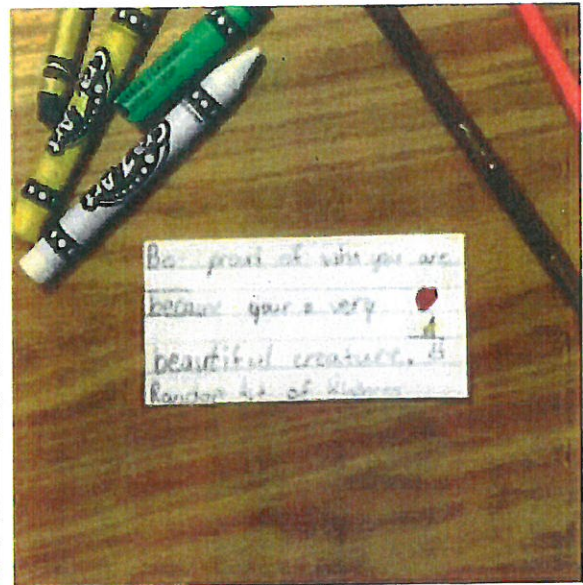 Be proud of who you are
because your a very
beautiful creature.
Random Act of Kindness